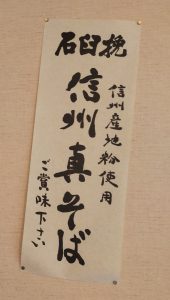 石臼挽
信州産地粉使用
信州真そば
ご賞味下さい